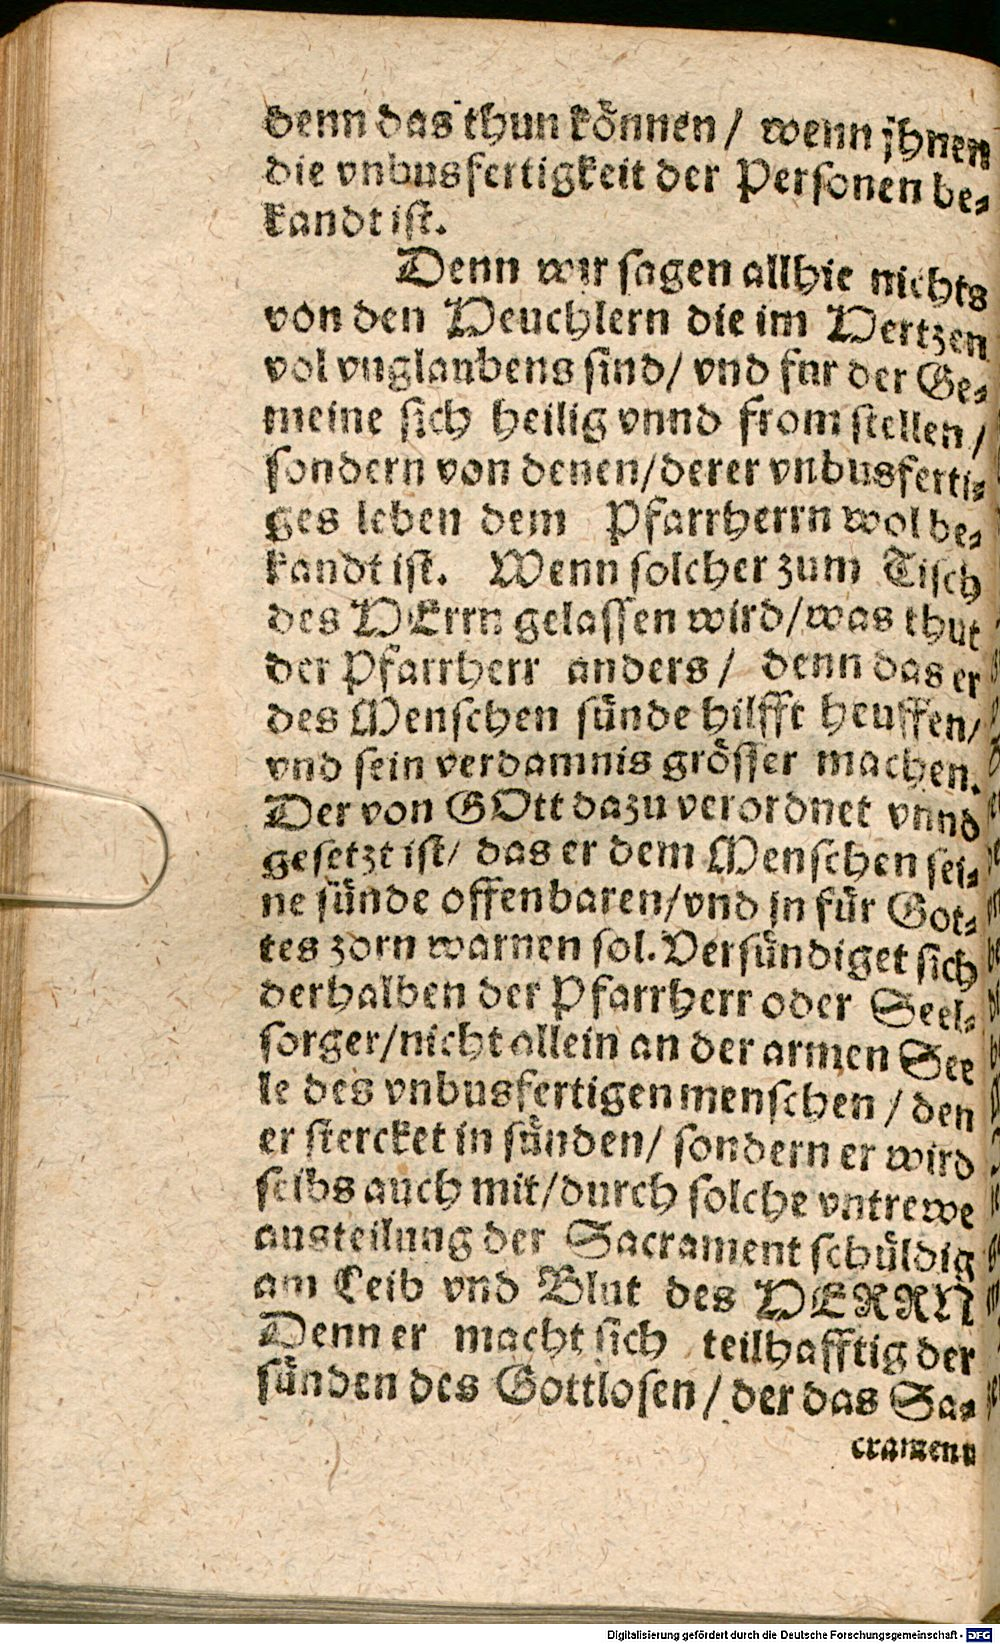 denn das thun können / wenn jhnen
die vnbusfertigkeit der Personen be⸗
kandt ist.
Denn wir sagen allhie nichts
von den Heuchlern die im Hertzen
vol vnglaubens sind/ vnd fur der Ge⸗
meine sich heilig vnnd from stellen /
sondern von denen/derer vnbusferti⸗
ges leben dem Pfarrherrn wol be⸗
kandt ist. Wenn solcher zum Tisch
des HErrn gelassen wird/was thut
der Pfarrherr anders / denn das er
des Menschen sünde hilfft heuffen/
vnd sein verdamnis grösser machen.
Der von GOtt dazu verordnet vnnd
gesetzt ist/ das er dem Menschen sei⸗
ne sünde offenbaren/vnd jn für Got⸗
tes zorn warnen sol. Versündiget sich
derhalben der Pfarrherr oder Seel⸗
sorger/nicht allein an der armen See
le des vnbusfertigen menschen / den
er stercket in sünden/ sondern er wird
selbs auch mit/durch solche vntrewe
austeilung der Sacrament schüldig
am Leib vnd Blut des HERRN
Denn er macht sich teilhafftig der
sünden des Gottlosen / der das Sa⸗
crament
Digitalisierung gefördert durch die Deutsche Forschungsgemeinschaft - DFG